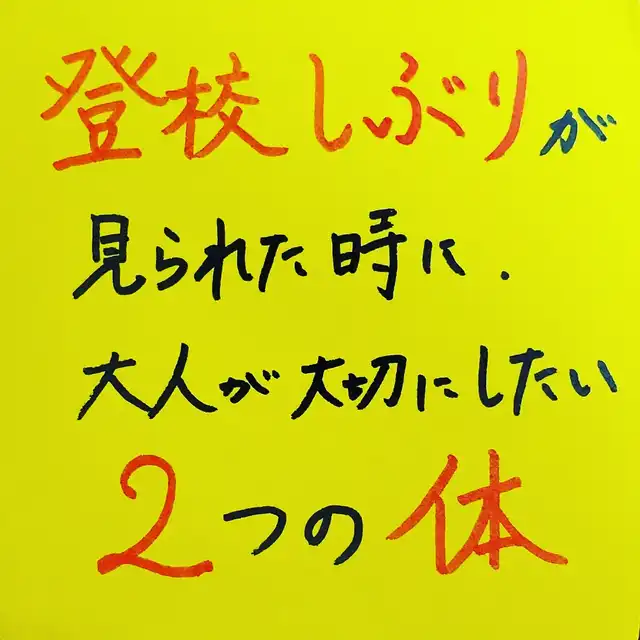 登校しぶりが
見られた時に.
大人が大切にしたい
2つの体